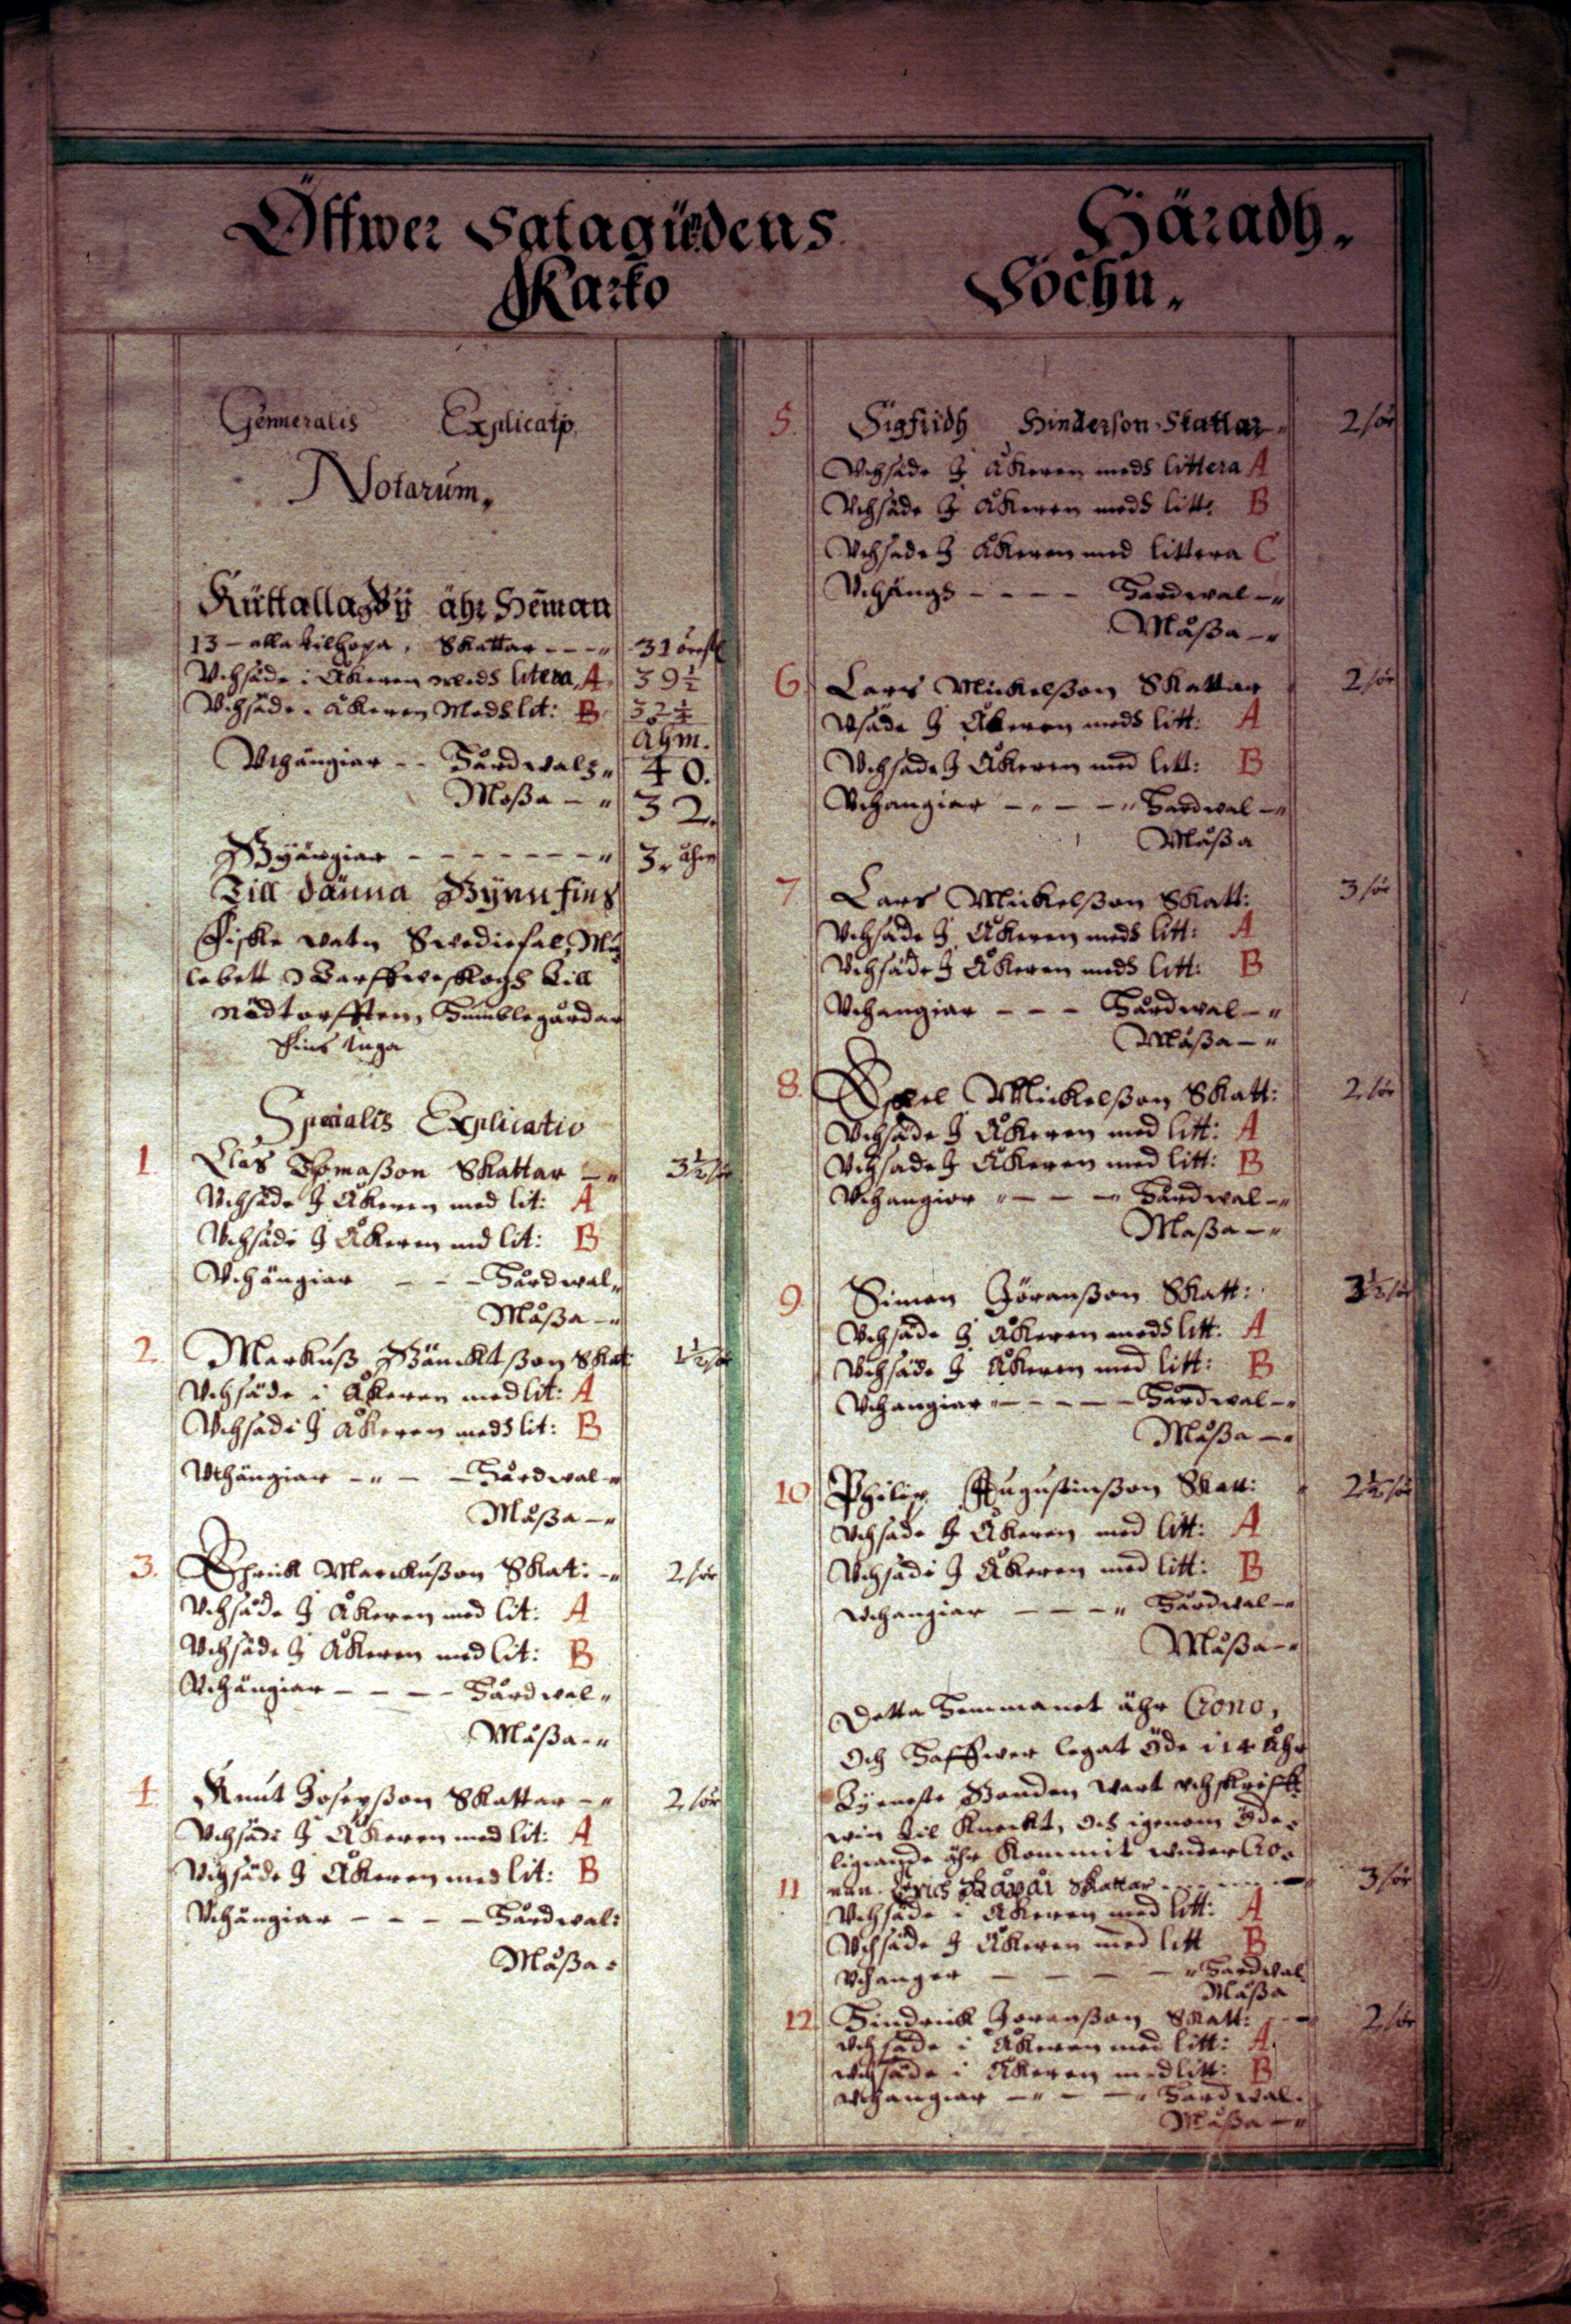 Öffwer Satagundens Häradh.
Karko Sochn.
Generalis Explicatio
Notarum.
Kuttalla By ähr Heman
13 - alla tilhopa, Skattar - - - 31 öresk
Vthsäde i Åkeren meds litera A 39 1/2
Vthsäde i åkeren Meds lit: B 32 1/4
åhm.
Vthängiar - - Hårdwals 40.
Moßa - 32.
Byängiar - - - - - - - 3. åhm
Till dänna Bÿnn fins
Fiske watn
lebett
nödtorfften, Humblegårdar
fins inga
Specialis Explicatio
1. Clas Thomaßon Skattar - 3 1/2 sör
Vthsäde I Åkeren med lit: A
Vthsäde I Åkeren med lit: B
Vthängiar - - - Hårdwal
Måßa -
2. Markuß Bäncktßon Skat 1 1/2 sör
Vthsäde i Åkeren med lit: A
Vthsäde I Åkeren meds lit: B
Vthängiar - - - Hårdwal -
Måßa -
3. Ehrick Marckußon Skat: - 2 sör
Vthsäde I Åkeren med lit: A
Vthsäde I Åkeren med lit: B
Vthängiar - - - - Hårdwal
Måßa -
4. Knut Josepßon Skattar - 2 sör
Vthsäde I Åkeren med lit: A
Vthsäde I Åkeren med lit: B
Vthängiar - - - - Hårdwal:
Måßa :
5. Sigfridh Hinderson Skattar 2 sör
Vthsäde I åkeren meds littera A
Vthsäde I åkeren meds litt: B
Vthsäde I åkeren med littera C
Vthängs - - - - Hårdwal -
Måßa -
6. Lars Mickelßon Skattar 2 sör
Vsäde I Åkeren meds litt: A
Vthsäde I Åkeren med litt: B
Vthangiar - - - Hardwal -
Måßa
7. Lars Mickelßon Skatt: 3 sör
Vthsäde I Åkeren meds litt: A
Vthsäde I Åkeren meds litt: B
Vthangiar - - - Hårdwal -
Måßa -
8. Axel Mickelßon Skatt: 2 sör
Vthsäde I Åkeren med litt: A
Vthsade I Åkeren med litt: B
Vthangiar - - - Hårdwal -
Maßa -
9. Simon Jöranßon Skatt: 3 1/2 sör
Vthsäde I Åkeren meds litt: A
Vthsäde I Åkeren med litt: B
Vthangiar - - - - - Hårdwal -
Måßa -
10 Philip Augustinßon Skatt: 2 1/2 sör
Vthsäde I Åkeren med litt: A
Vthsäde I Åkeren med litt: B
Vthangiar - - - Hårdwal -
Måßa -
Detta Hemmanet ähr Crono,
Och Haffwer legat öde i 14 åhr
Bonden wart vthskriff
win til Knecht, Och igenom öde
ligiande ähr kommit under Cro
nan. Erich Skattar - - - -
11 3 sör
Vthsäde i Åkeren med litt: A
Vthsäde I Åkeren med litt B
Vthanger - - - - Hardwal
Måßa
12. Hindrick Joranßon Skatt: - 2 sör
Vthsäde i Åkeren med litt: A
Vthsäde i Åkeren med litt: B
Vthangiar - - - Hardwal.
Måßa -